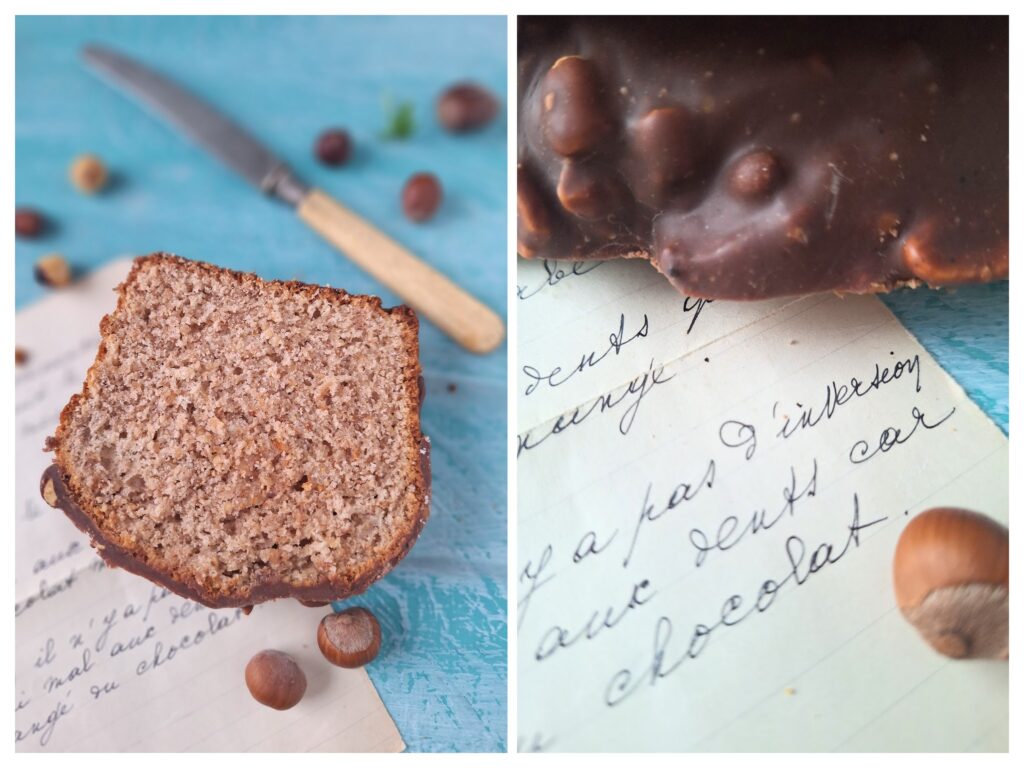 aux
il n'y a pa
mal aux den
angé du chocolat
dents
mangé.
y a pas d'inversion
aux dents car
chocolat.